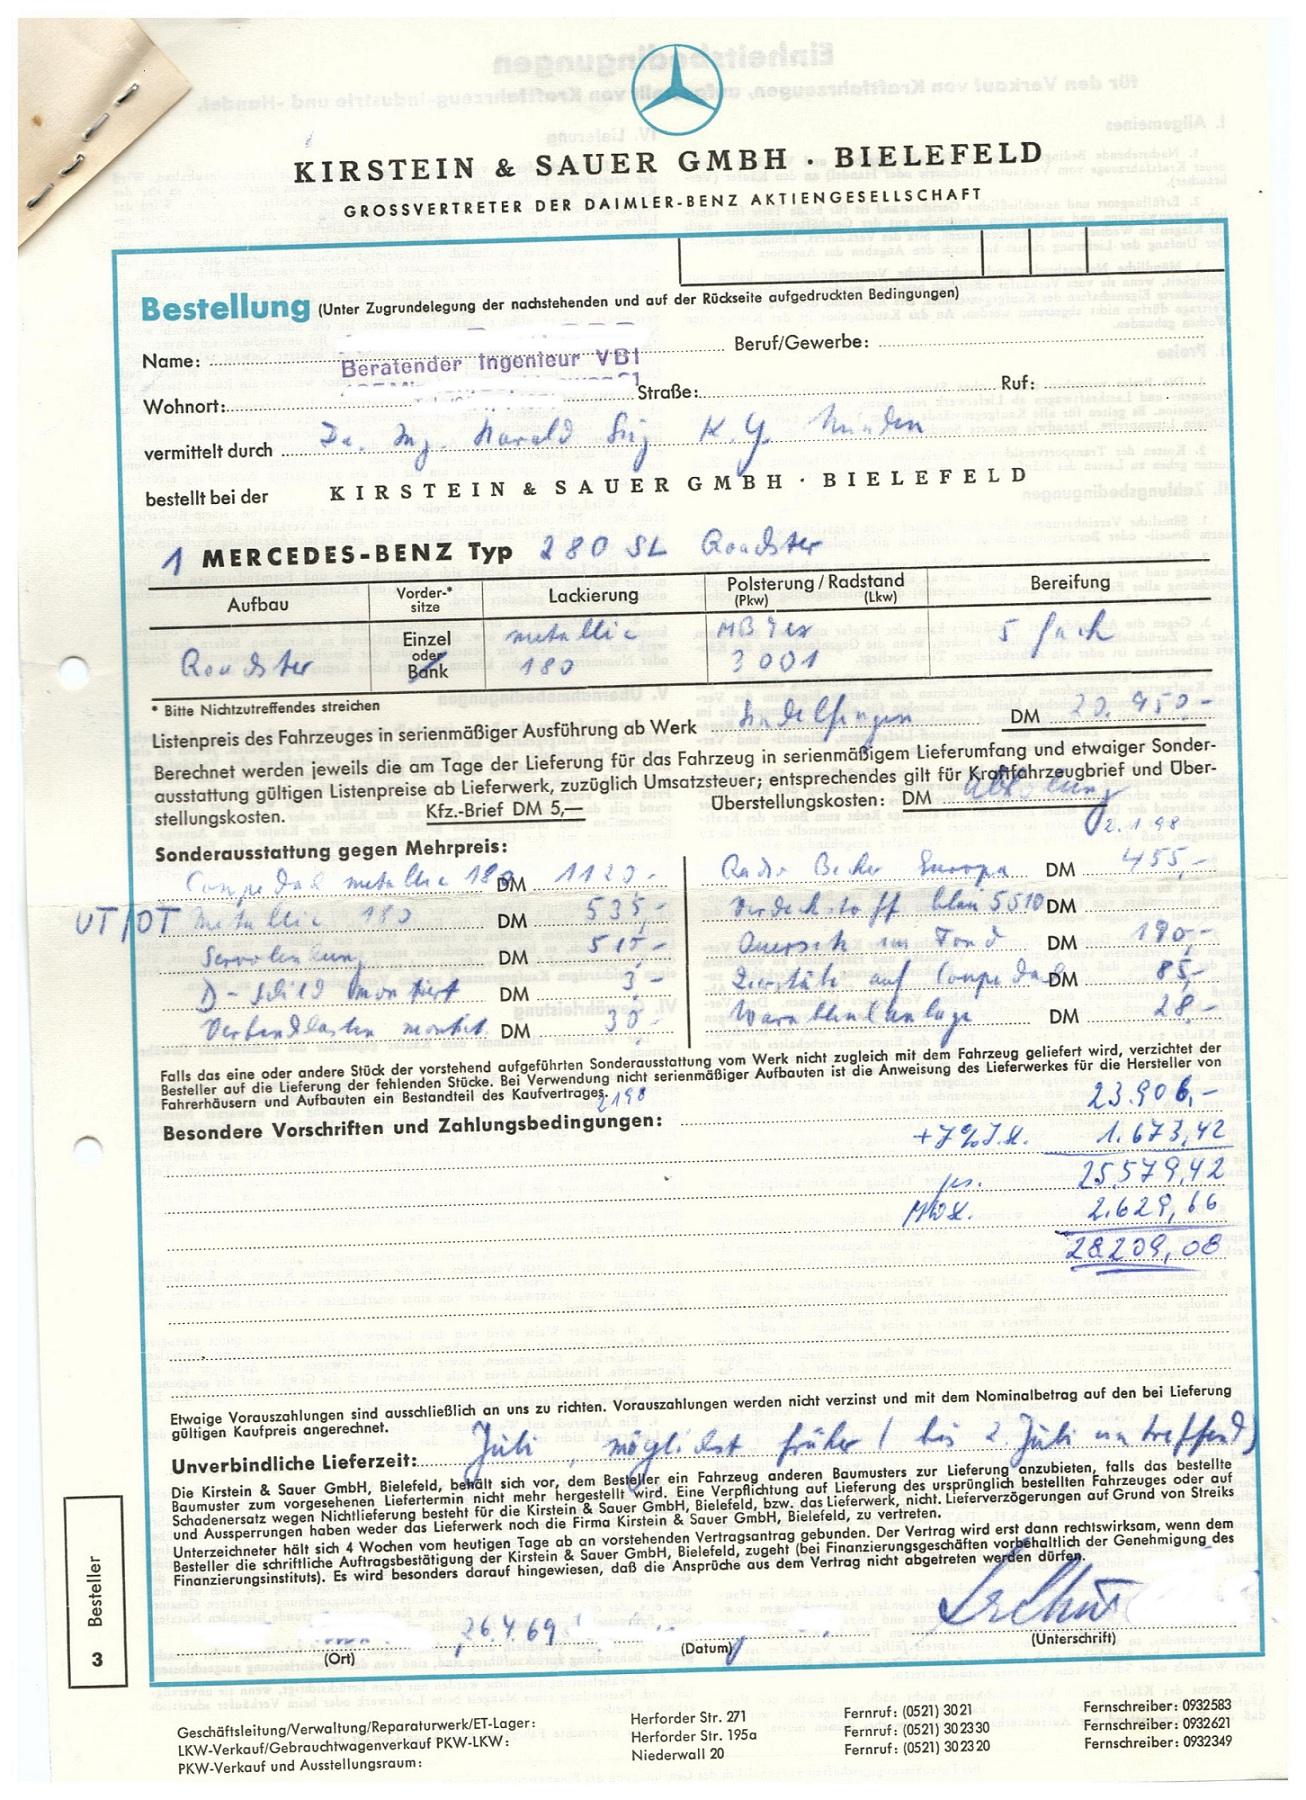 KIRSTEIN & SAUER GMBH · BIELEFELD
GROSSVERTRETER DER DAIMLER-BENZ AKTIENGESELLSCHAFT
Bestellung (Unter Zugrundelegung der nachstehenden und auf der Rückseite aufgedruckten Bedingungen)
Name: Beratender Ingenieur VBI Beruf/Gewerbe:
Wohnort: Straße: Ruf:
vermittelt durch Dr. Ing. Harald K.G. Minden
bestellt bei der KIRSTEIN & SAUER GMBH · BIELEFELD
1 MERCEDES-BENZ Typ 280 SL Roadster
Aufbau Vorder-* sitze Lackierung Polsterung / Radstand (Pkw) (Lkw) Bereifung
Roadster Einzel oder Bank metallic 180 MB Tex 3001 5 fach
* Bitte Nichtzutreffendes streichen
Listenpreis des Fahrzeuges in serienmäßiger Ausführung ab Werk Sindelfingen DM 20.950,-
Berechnet werden jeweils die am Tage der Lieferung für das Fahrzeug in serienmäßigem Lieferumfang und etwaiger Sonder-
ausstattung gültigen Listenpreise ab Lieferwerk, zuzüglich Umsatzsteuer; entsprechendes gilt für Kraftfahrzeugbrief und Über-
stellungskosten. Kfz.-Brief DM 5,— Überstellungskosten: DM Abholung
2.198
Sonderausstattung gegen Mehrpreis:
Coupedach metallic 180 DM 1120,- Radio Becker Europa DM 455,-
UT/DT Metallic 180 DM 535,- Verdeckstoff blau 5510 DM
Servolenkung DM 515,- Quersitz im Fond DM 190,-
D-Schild montiert DM 3,- Zierstäbe auf Coupedach DM 85,-
Verbandkasten montiert DM 30,- Warnblinkanlage DM 28,-
Falls das eine oder andere Stück der vorstehend aufgeführten Sonderausstattung vom Werk nicht zugleich mit dem Fahrzeug geliefert wird, verzichtet der
Besteller auf die Lieferung der fehlenden Stücke. Bei Verwendung nicht serienmäßiger Aufbauten ist die Anweisung des Lieferwerkes für die Hersteller von
Fahrerhäusern und Aufbauten ein Bestandteil des Kaufvertrages. 2198
Besondere Vorschriften und Zahlungsbedingungen: 23.906,-
+7% 1.673,42
25.579,42
MWSt. 2.629,66
28209,08
Etwaige Vorauszahlungen sind ausschließlich an uns zu richten. Vorauszahlungen werden nicht verzinst und mit dem Nominalbetrag auf den bei Lieferung
gültigen Kaufpreis angerechnet.
Unverbindliche Lieferzeit: Juli, möglichst früher (bis 2. Juli eintreffend)
Die Kirstein & Sauer GmbH, Bielefeld, behält sich vor, dem Besteller ein Fahrzeug anderen Baumusters zur Lieferung anzubieten, falls das bestellte
Baumuster zum vorgesehenen Liefertermin nicht mehr hergestellt wird. Eine Verpflichtung auf Lieferung des ursprünglich bestellten Fahrzeuges oder auf
Schadenersatz wegen Nichtlieferung besteht für die Kirstein & Sauer GmbH, Bielefeld, bzw. das Lieferwerk, nicht. Lieferverzögerungen auf Grund von Streiks
und Aussperrungen haben weder das Lieferwerk noch die Firma Kirstein & Sauer GmbH, Bielefeld, zu vertreten.
Unterzeichneter hält sich 4 Wochen vom heutigen Tage ab an vorstehenden Vertragsantrag gebunden. Der Vertrag wird erst dann rechtswirksam, wenn dem
Besteller die schriftliche Auftragsbestätigung der Kirstein & Sauer GmbH, Bielefeld, zugeht (bei Finanzierungsgeschäften vorbehältlich der Genehmigung des
Finanzierungsinstituts). Es wird besonders darauf hingewiesen, daß die Ansprüche aus dem Vertrag nicht abgetreten werden dürfen.
26.4.69
(Ort) (Datum) (Unterschrift)
3 Besteller
Geschäftsleitung/Verwaltung/Reparaturwerk/ET-Lager: Herforder Str. 271 Fernruf: (0521) 3021 Fernschreiber: 0932583
LKW-Verkauf/Gebrauchtwagenverkauf PKW-LKW: Herforder Str. 195a Fernruf: (0521) 302330 Fernschreiber: 0932621
PKW-Verkauf und Ausstellungsraum: Niederwall 20 Fernruf: (0521) 302320 Fernschreiber: 0932349